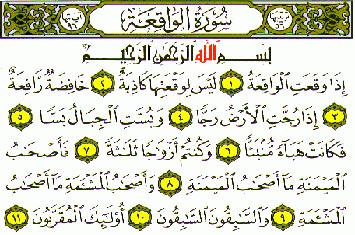 سُورَةُ الوَاقِعَةِ
بِسْمِ اللَّهِ الرَّحْمَٰنِ الرَّحِيمِ
إِذَا وَقَعَتِ الْوَاقِعَةُ ١ لَيْسَ لِوَقْعَتِهَا كَاذِبَةٌ ٢ خَافِضَةٌ رَّافِعَةٌ
٣ إِذَا رُجَّتِ الْأَرْضُ رَجًّا ٤ وَبُسَّتِ الْجِبَالُ بَسًّا ٥
فَكَانَتْ هَبَاءً مُّنْبَثًّا ٦ وَكُنتُمْ أَزْوَاجًا ثَلَاثَةً ٧ فَأَصْحَابُ
الْمَيْمَنَةِ مَا أَصْحَابُ الْمَيْمَنَةِ ٨ وَأَصْحَابُ الْمَشْئَمَةِ مَا أَصْحَابُ
الْمَشْئَمَةِ ٩ وَالسَّابِقُونَ السَّابِقُونَ ١٠ أُولَٰئِكَ الْمُقَرَّبُونَ ١١